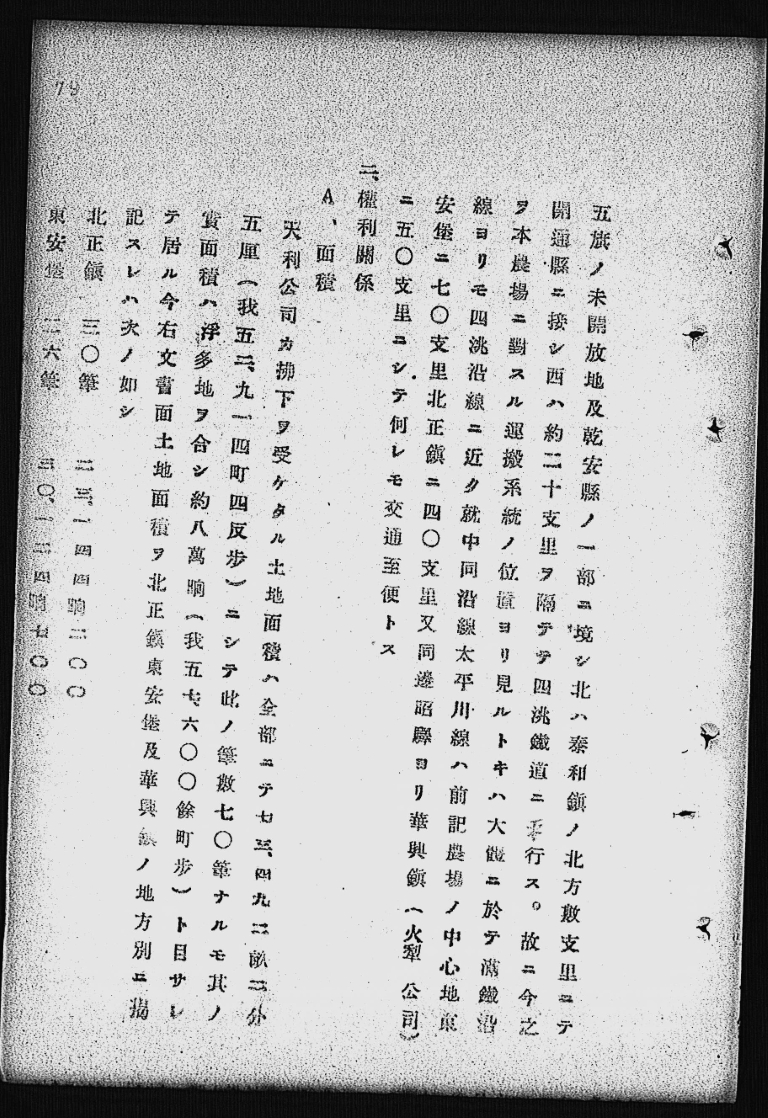 79
五旗ノ未開放地及乾安縣ノ一部ニ境シ北ハ泰和鎭ノ北方數支里ニテ
開通縣ニ接シ西ハ約二十支里ヲ隔テテ四洮鐵道ニ平行ス。故ニ今之
ヲ本農場ニ對スル運搬系統ノ位置ヨリ見ルトキハ大體ニ於テ滿鐵沿
線ヨリモ四洮沿線ニ近ク就中同沿線太平川線ハ前記農場ノ中心地東
安堡ニ七〇支里北正鎭ニ四〇支里又同邊昭驛ヨリ華興鎭(火犁公司)
ニ五〇支里ニシテ何レモ交通至便トス
二、權利關係
A、面積
天利公司カ拂下ヲ受ケタル土地面積ハ全部ニテ七三、四九二畝二分
五厘(我五二、九一四町四反歩)ニシテ此ノ筆數七〇筆ナルモ其ノ
實面積ハ浮多地ヲ合シ約八萬晌(我五七、六〇〇餘町歩)ト目サレ
テ居ル今右文書面土地面積ヲ北正鎭東安堡及華興鎭ノ地方別ニ揭
記スレハ次ノ如シ
北正鎭 三〇筆 二三、一四四晌二〇〇
東安堡 二六筆 三〇、一二四晌七〇〇